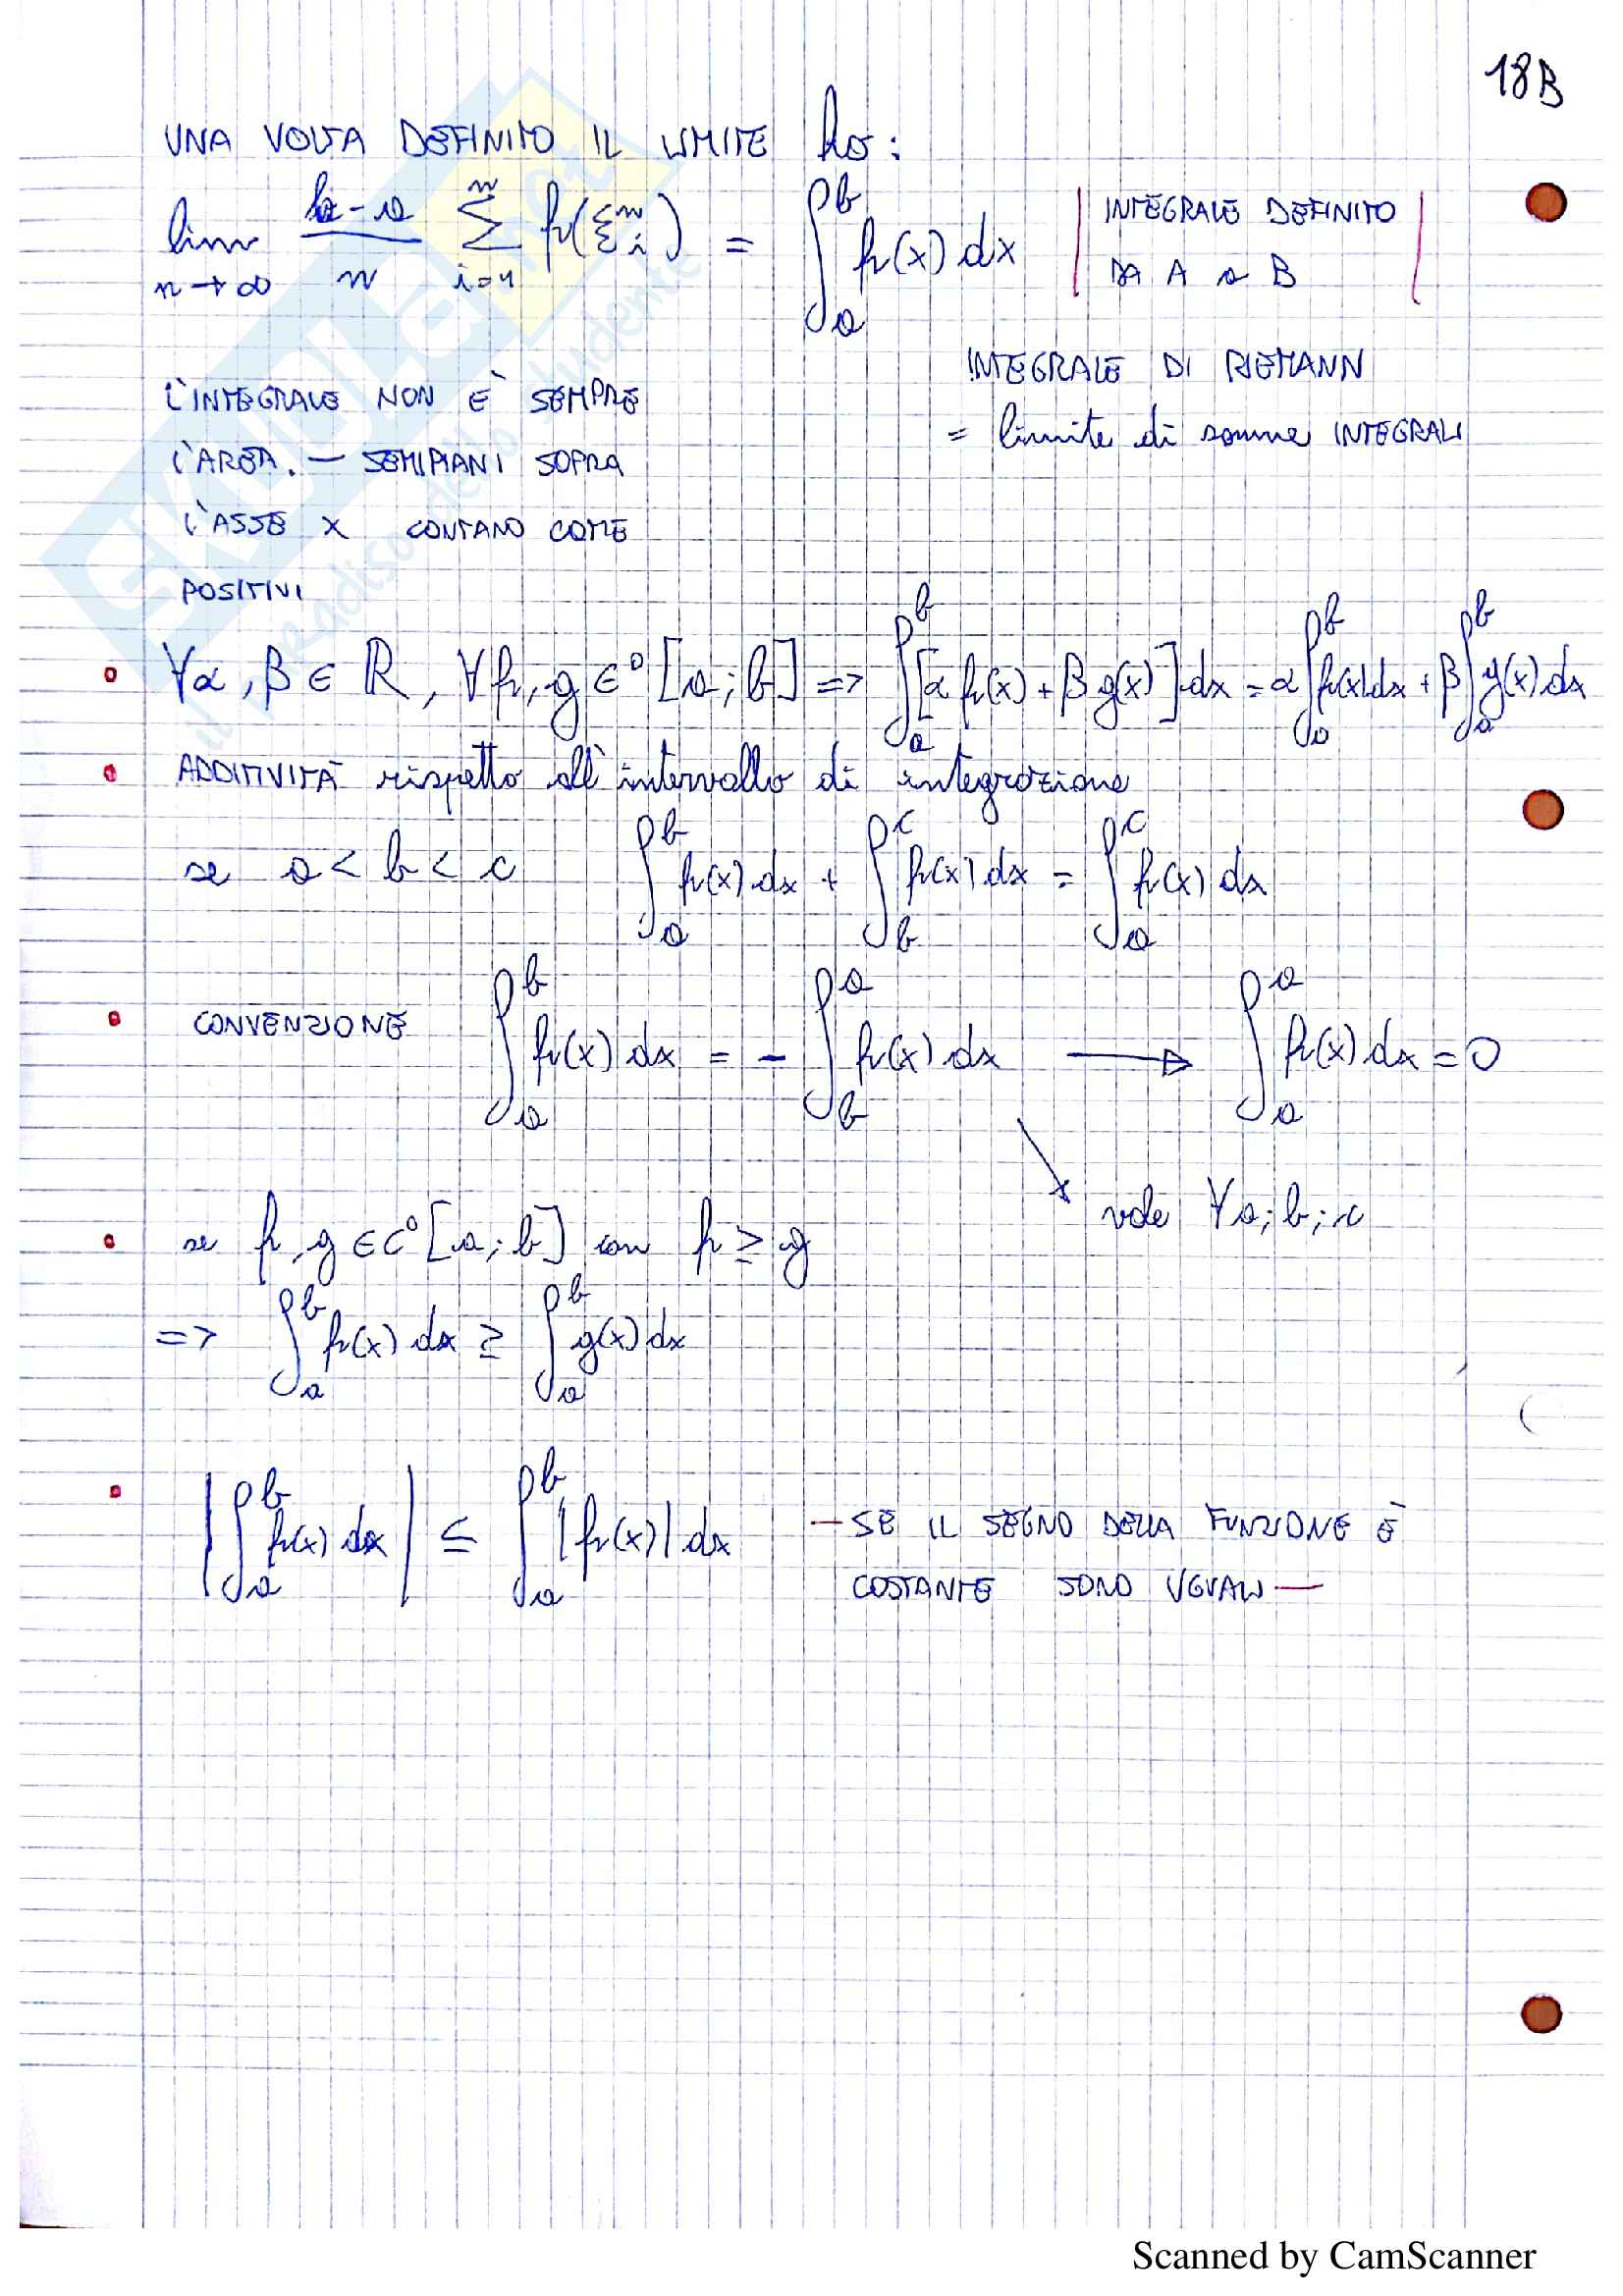 18B
UNA VOLTA DEFINITO IL LIMITE ho:
lim n→∞ b-a/n ∑ i=1 n f(ξ i n) = ∫ a b f(x) dx | INTEGRALE DEFINITO
DA A a B |
INTEGRALE DI RIEMANN
= limite di somme INTEGRALI
L'INTEGRALE NON È SEMPRE
L'AREA. — SEMIPIANI SOPRA
L'ASSE X CONTANO COME
POSITIVI
• ∀α, β ∈ ℝ, ∀f, g ∈⁰ [a; b] => ∫ a b [α f(x) + β g(x)] dx = α ∫ a b f(x) dx + β ∫ a b g(x) dx
• ADDITIVITÀ rispetto all'intervallo di integrazione
se a < b < c ∫ a b f(x) dx + ∫ b c f(x) dx = ∫ a c f(x) dx
• CONVENZIONE ∫ a b f(x) dx = - ∫ b a f(x) dx → ∫ a a f(x) dx = 0
vale ∀a; b; c
• se f, g ∈ C⁰ [a; b] con f ≥ g
=> ∫ a b f(x) dx ≥ ∫ a b g(x) dx
• | ∫ a b f(x) dx | ≤ ∫ a b |f(x)| dx — SE IL SEGNO DELLA FUNZIONE È
COSTANTE SONO UGUALI —
SKUOLA.net
il paradiso dello studente
Scanned by CamScanner